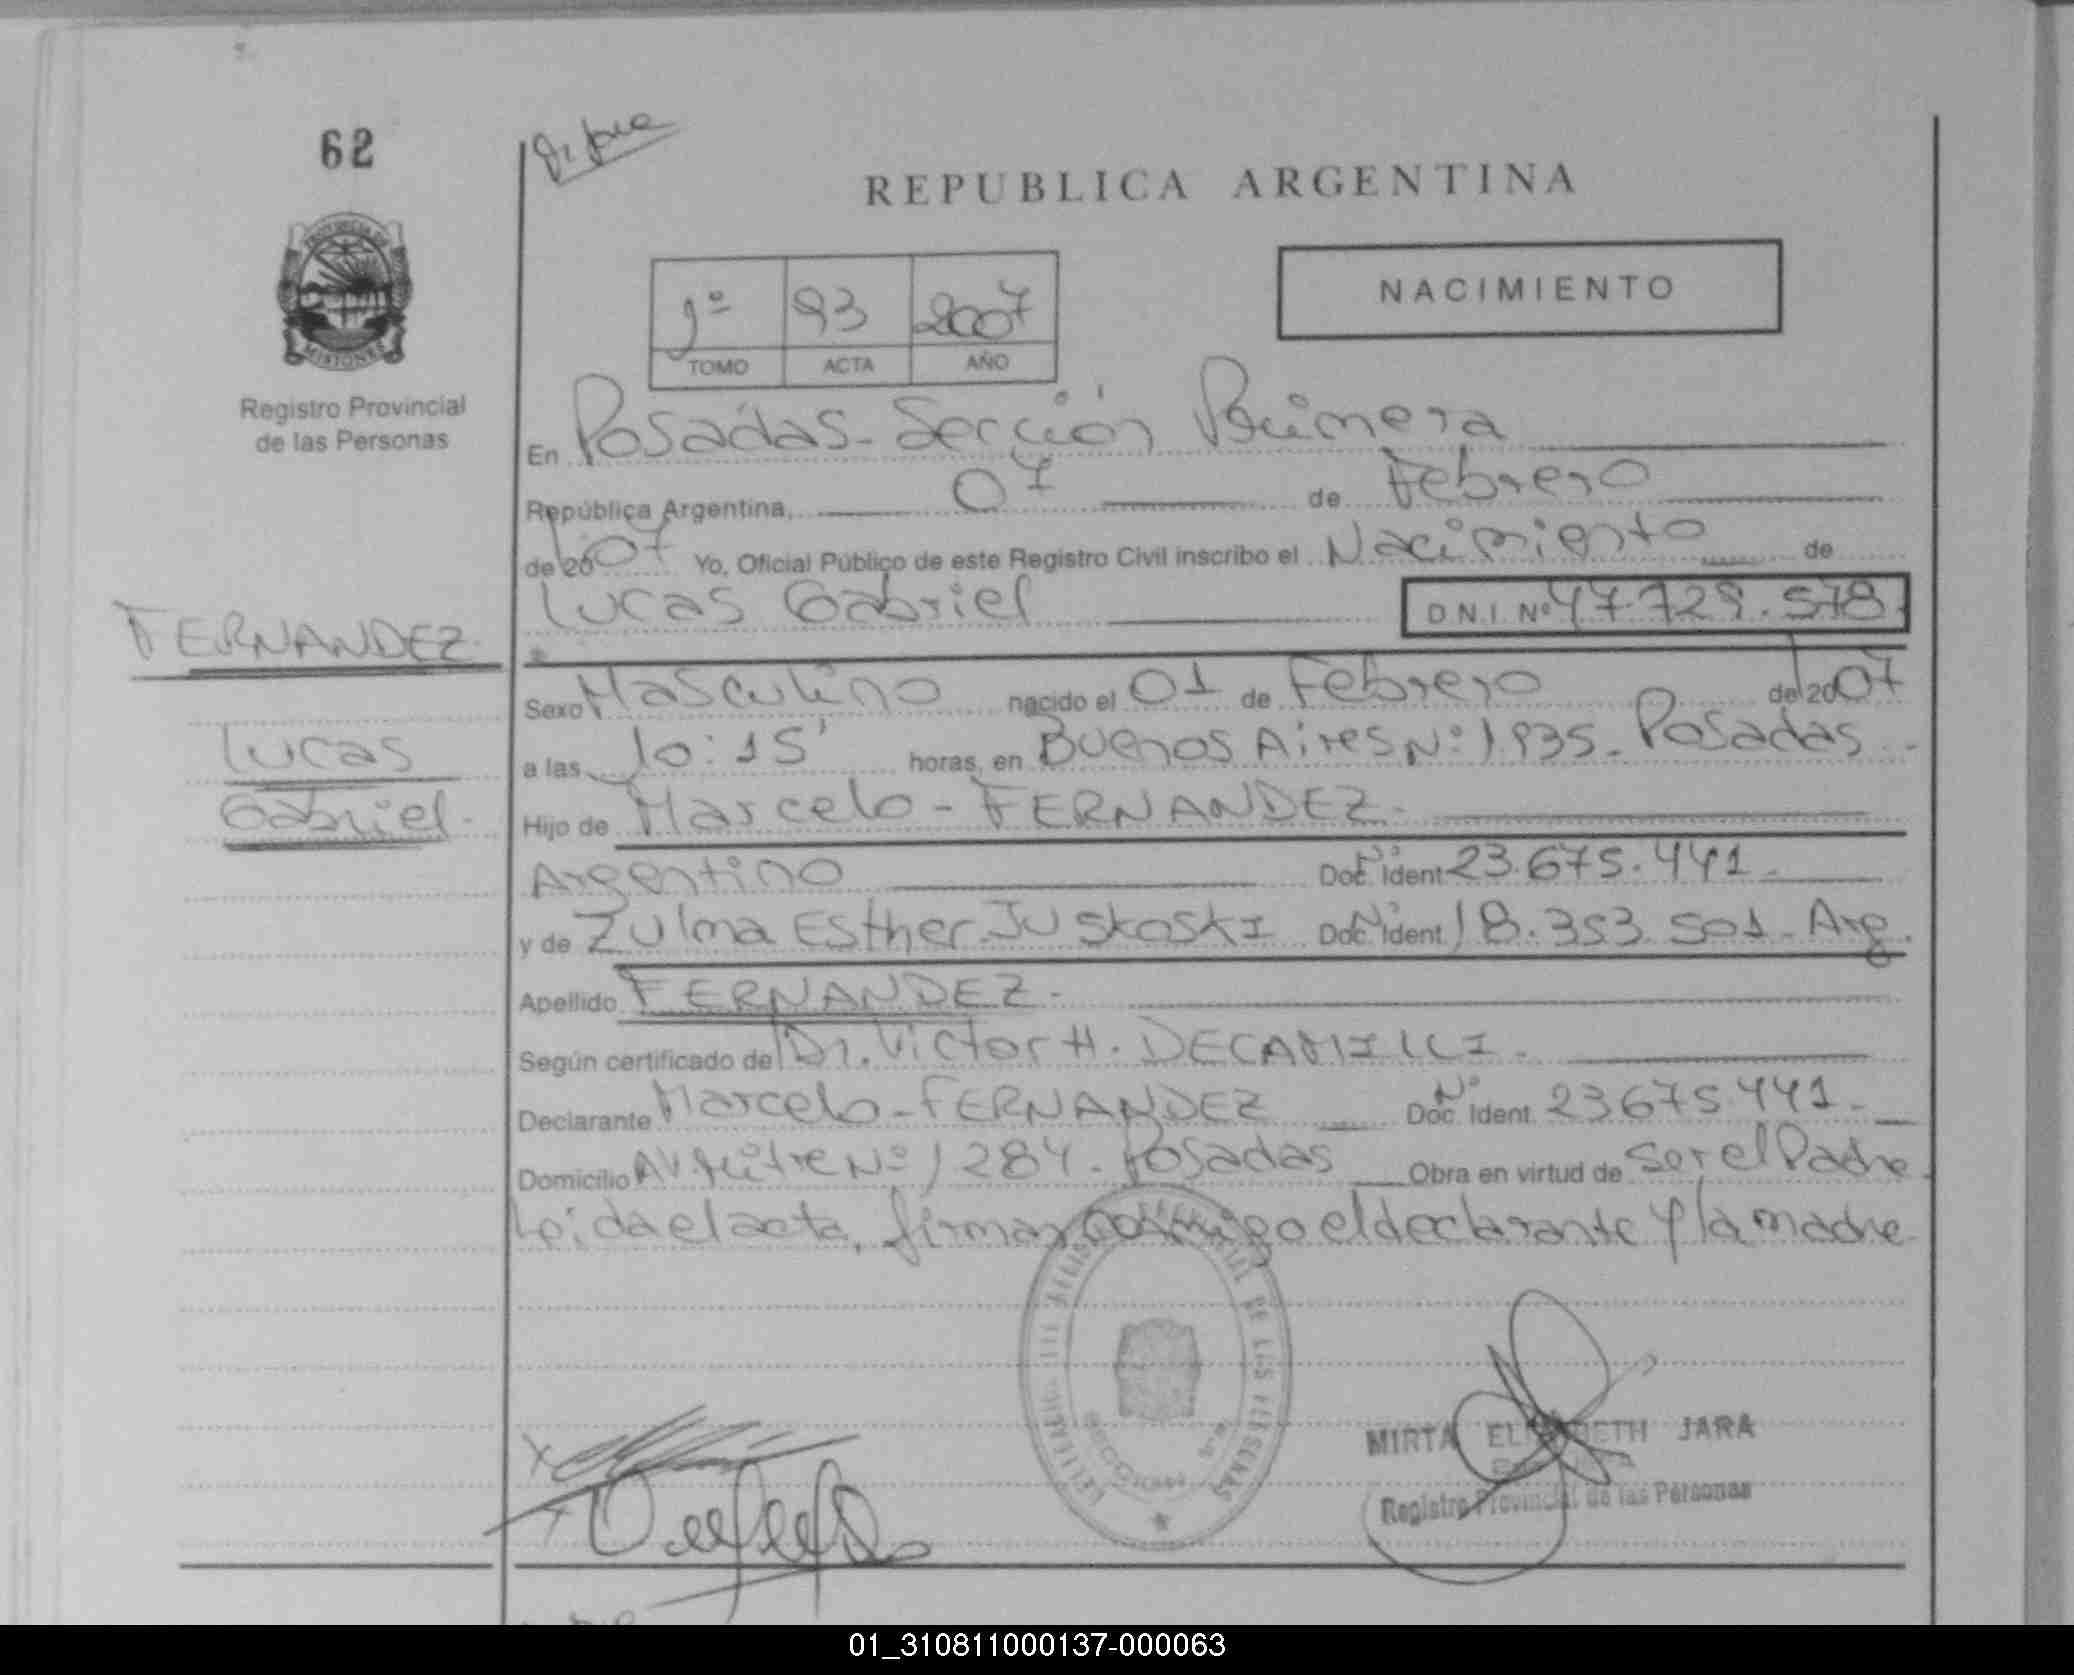 62
REPUBLICA ARGENTINA
PROVINCIA DE
MISIONES
Registro Provincial
de las Personas
1º 93 2007
TOMO ACTA AÑO
NACIMIENTO
En Posadas - Sección Primera
República Argentina, 07 de Febrero
de 2007 Yo, Oficial Público de este Registro Civil inscribo el Nacimiento de
Lucas Gabriel D.N.I. Nº 47.729.578
FERNANDEZ
Lucas
Gabriel.
Sexo Masculino nacido el 01 de Febrero de 2007
a las 10:15' horas, en Buenos Aires Nº 1.935 - Posadas
Hijo de Marcelo - FERNANDEZ.
Argentino Doc. Ident Nº 23.675.441.
y de Zulma Esther JUSKOSKI Doc. Ident. Nº 18.353.501 - Arg.
Apellido FERNANDEZ.
Según certificado de Dr. Victor H. DECAMILLI.
Declarante Marcelo - FERNANDEZ Doc. Ident. Nº 23675441.
Domicilio Av. Mitre Nº 1284. Posadas Obra en virtud de ser el Padre.
Leida el acta, firman conmigo el declarante y la madre
MIRTA ELIZABETH JARA
Registro Provincial de las Personas
01_310811000137-000063